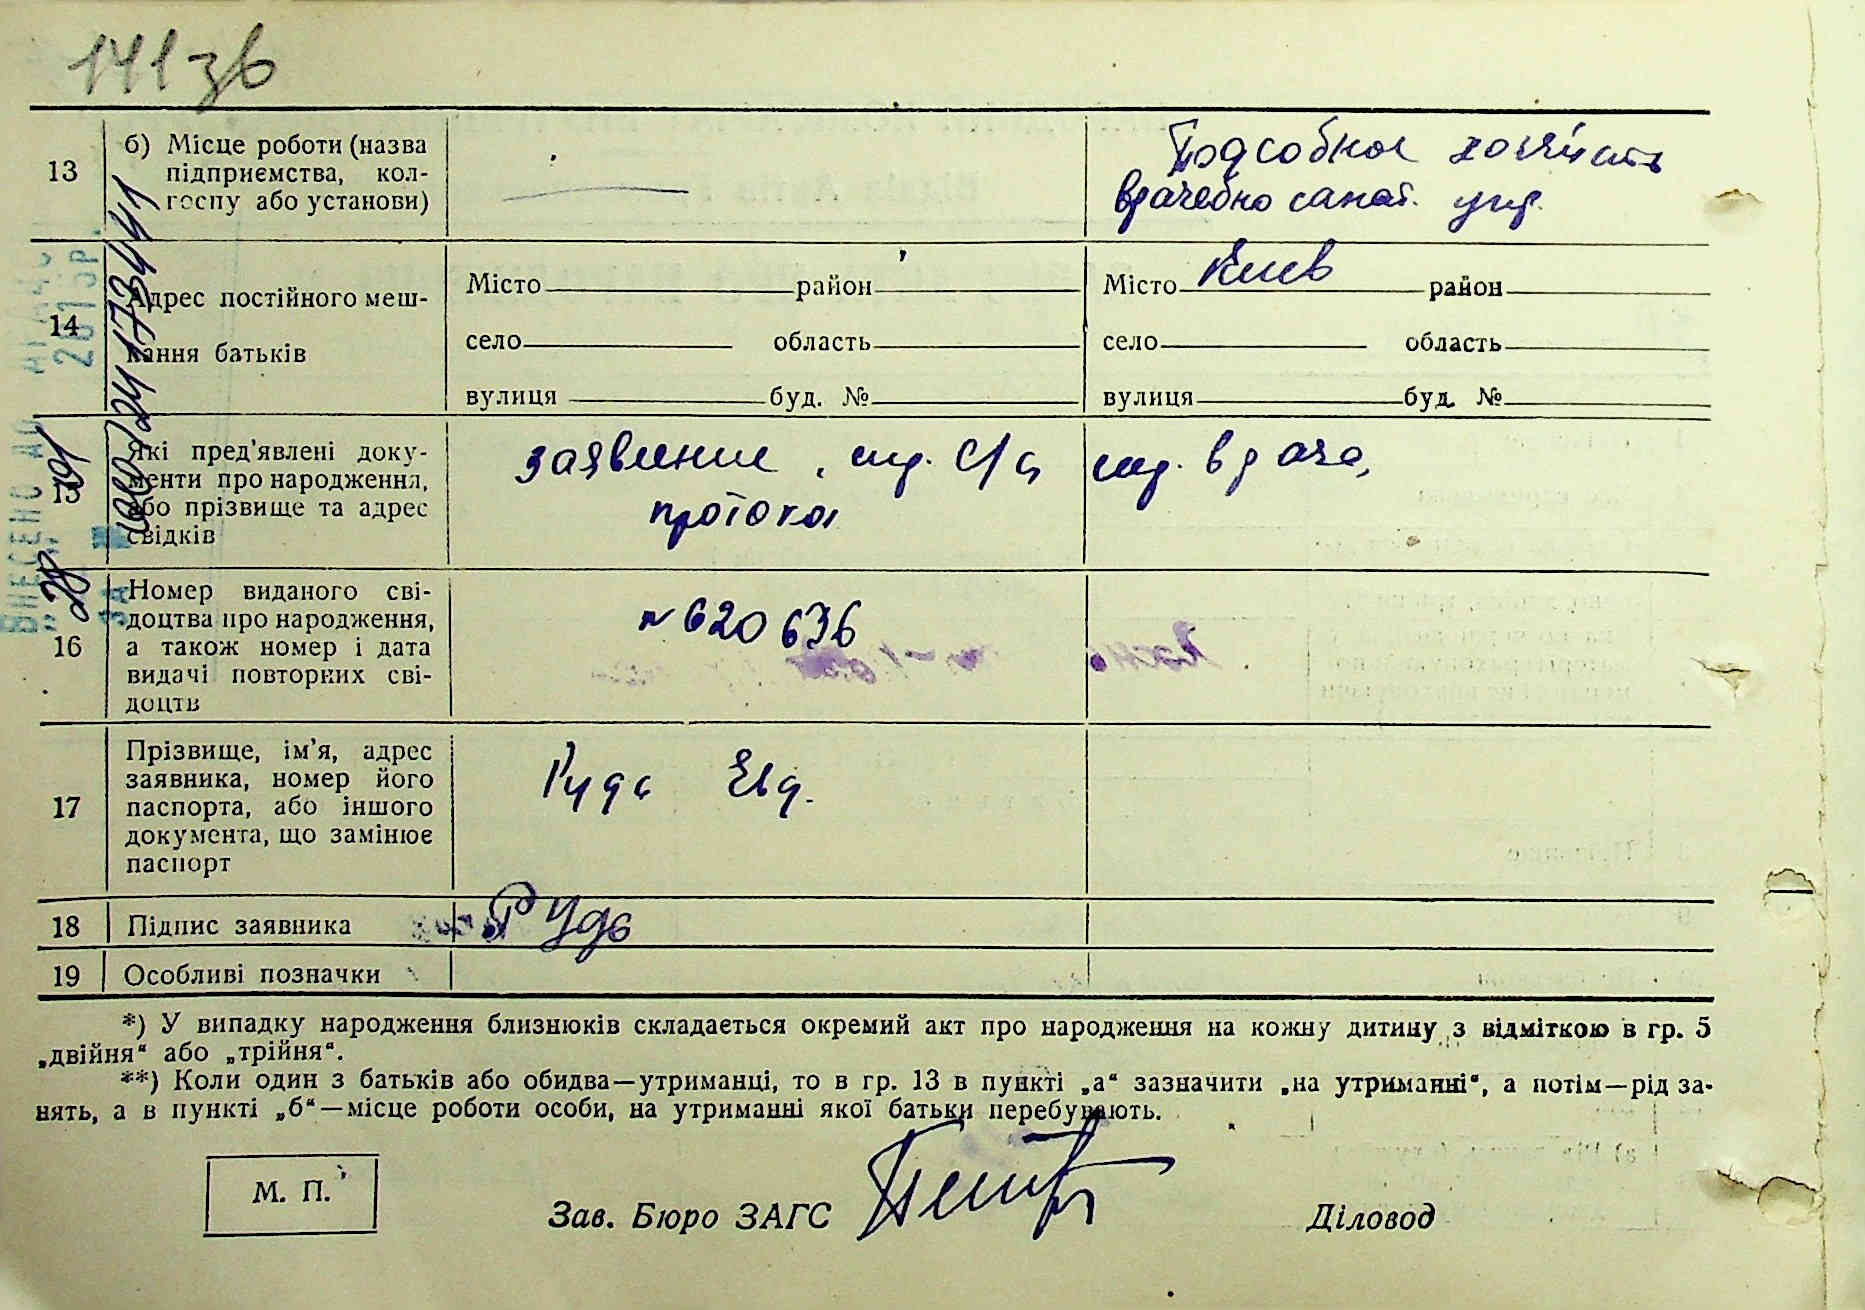 141зв
13
б) Місце роботи (назва
підприємства, кол-
госпу або установи)
Подсобное хозяйств
врачебно санат. упр.
14
Адрес постійного меш-
кання батьків
Місто район
село область
вулиця буд. №
Місто Киев район
село область
вулиця буд. №
15
Які пред'явлені доку-
менти про народження,
або прізвище та адрес
свідків
заявление, спр. с/с спр. врача,
протокол
16
Номер виданого сві-
доцтва про народження,
а також номер і дата
видачі повторних сві-
доцтв
№ 620636
17
Прізвище, ім'я, адрес
заявника, номер його
паспорта, або іншого
документа, що замінює
паспорт
Руда Евд.
18 Підпис заявника
Рудь
19 Особливі позначки
*) У випадку народження близнюків складається окремий акт про народження на кожну дитину з відміткою в гр. 5
„двійня“ або „трійня“.
**) Коли один з батьків або обидва—утриманці, то в гр. 13 в пункті „а“ зазначити „на утриманні“, а потім—рід за-
нять, а в пункті „б“—місце роботи особи, на утриманні якої батьки перебувають.
М. П.
Зав. Бюро ЗАГС
Діловод
ВНЕСЕНО ДО
2015р.
ЗА №